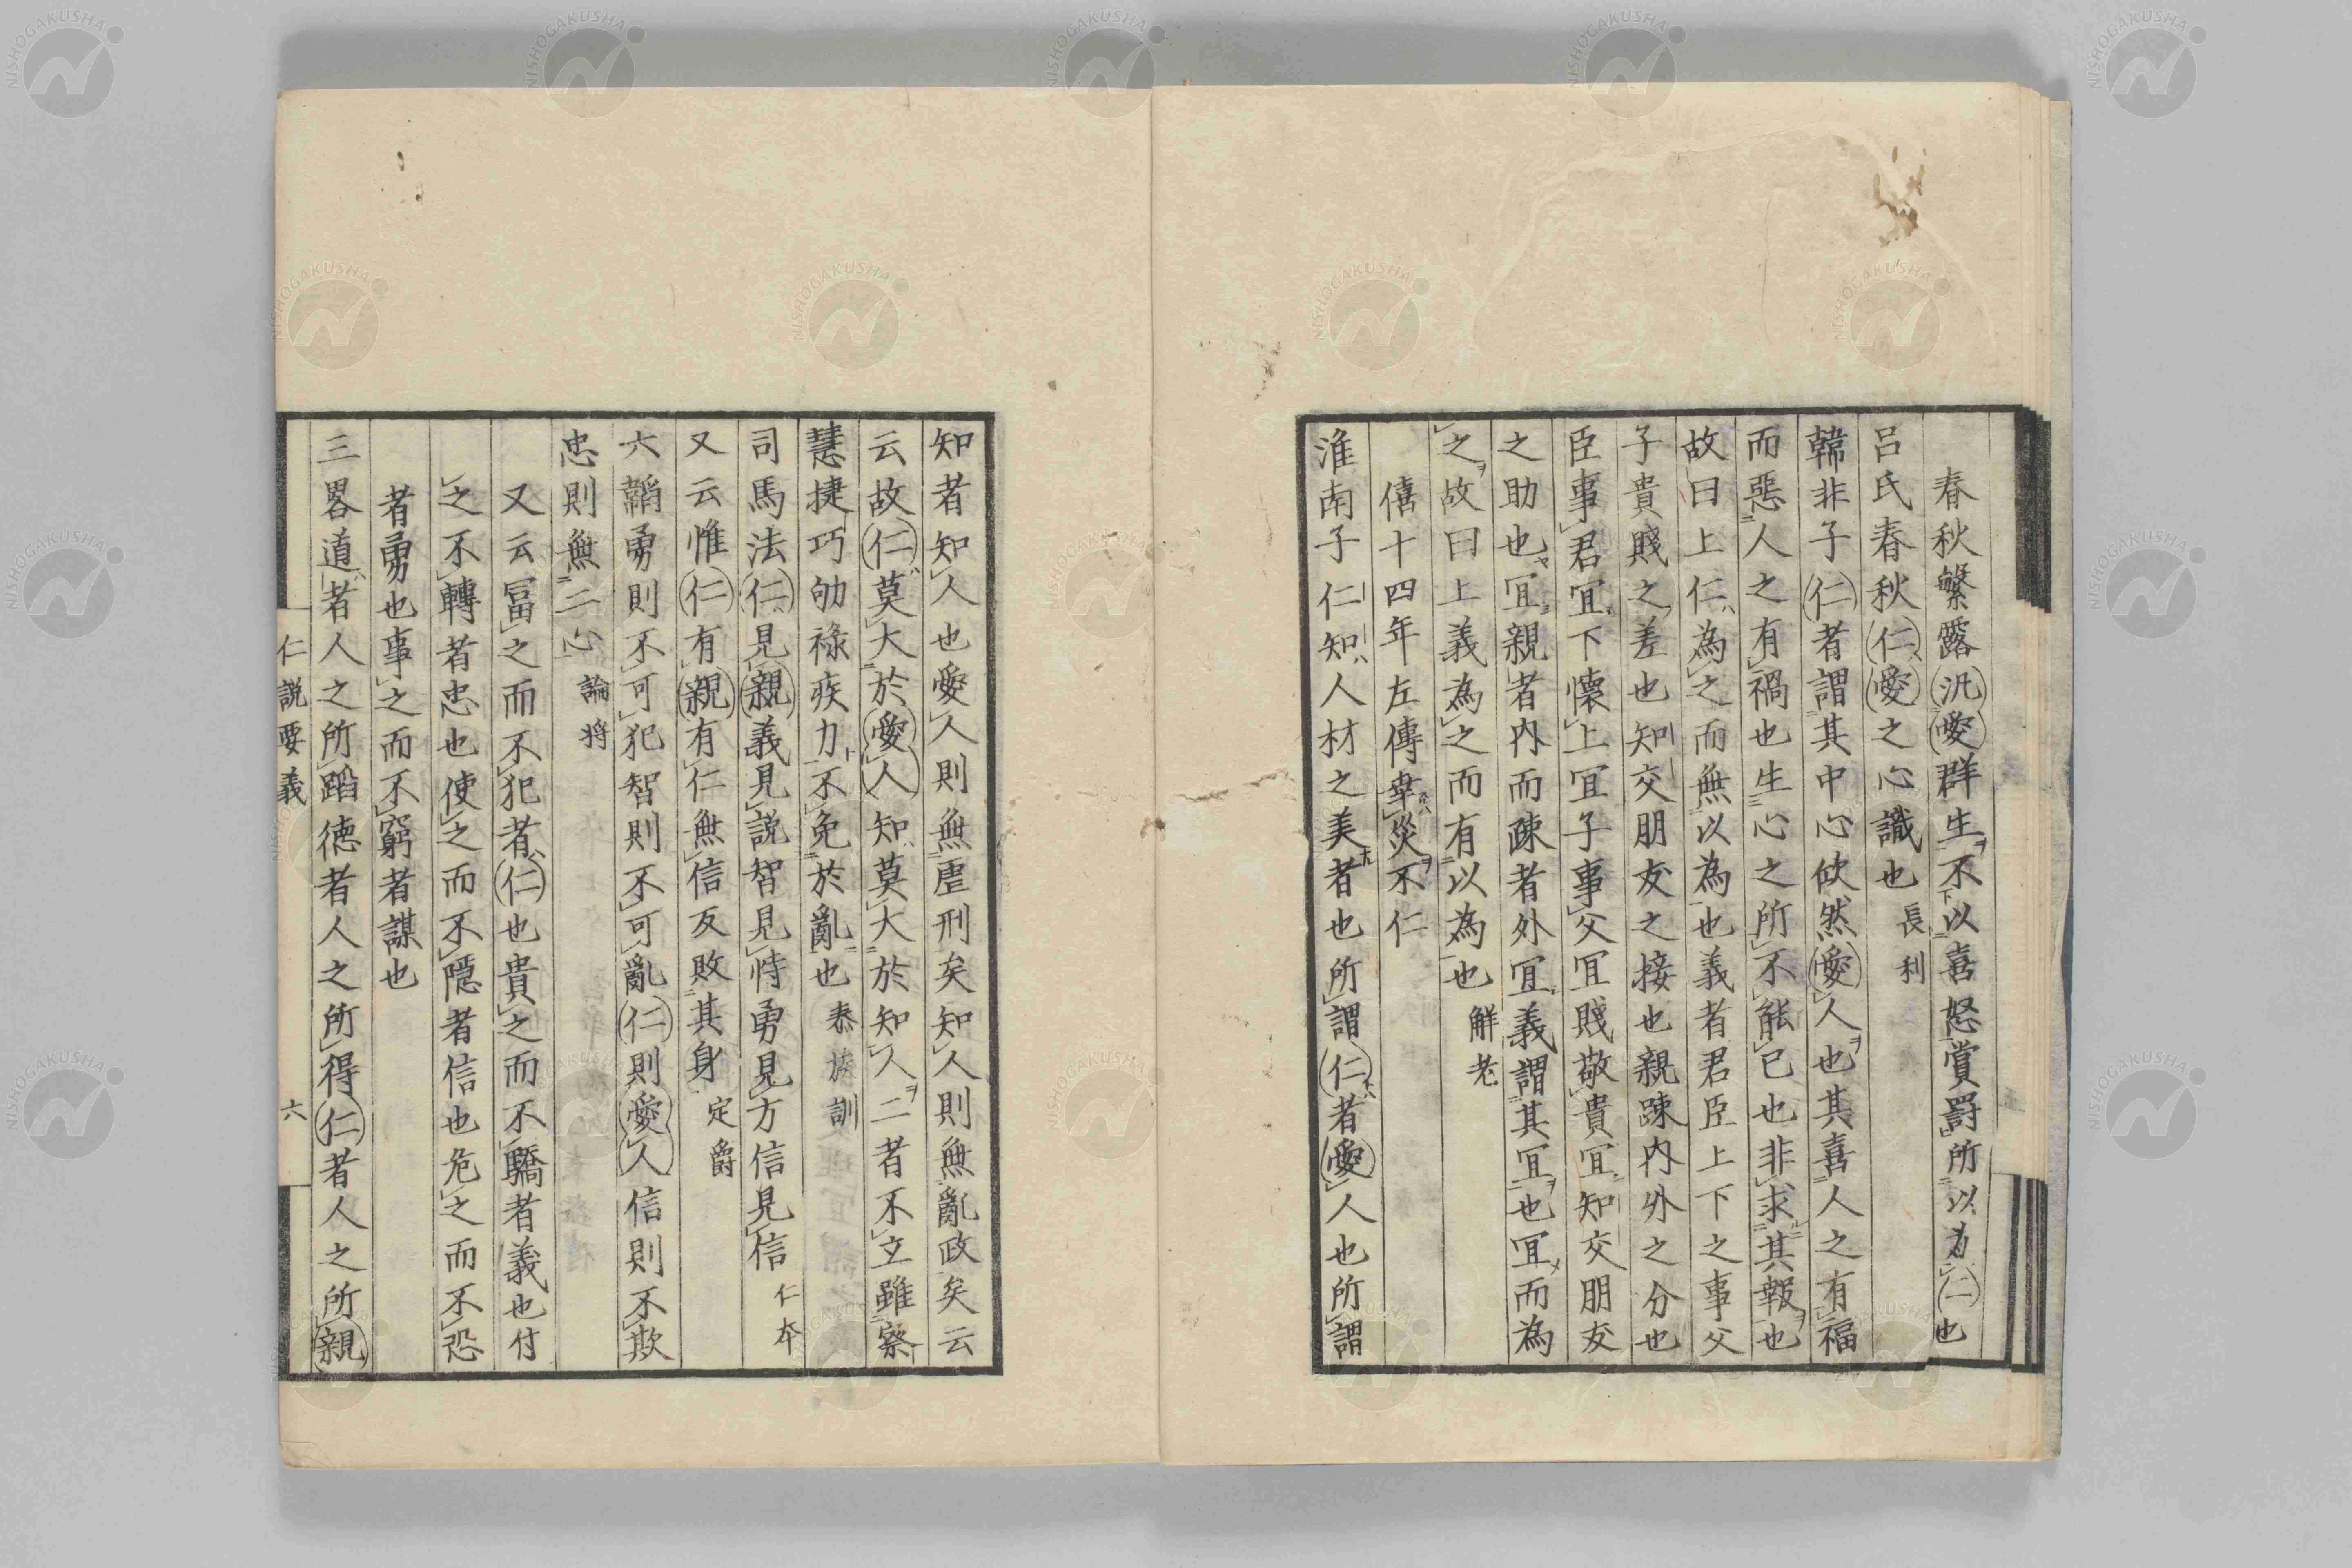 春秋繁露汎愛群生不以喜怒賞罰所以為仁也
呂氏春秋仁愛之心識也長利
韓非子仁者謂其中心欣然愛人也其喜人之有福
而惡人之有禍也生心之所不能已也非求其報也
故曰上仁為之而無以為也義者君臣上下之事父
子貴賤之差也知交朋友之接也親踈内外之分也
臣事君宜下懷上宜子事父宜賤敬貴宜知交朋友
之助也宜親者内而疎者外宜義謂其宜也宜而為
之故曰上義為之而有以為也解老
僖十四年左傳幸災不仁
淮南子仁知人材之美者也所謂仁者愛人也所謂
知者知人也愛人則無虐刑矣知人則無亂政矣云
云故仁莫大於愛人知莫大於知人二者不立雖察
慧捷巧劬祿疾力不免於亂也泰族訓
司馬法仁見親義見説智見恃勇見方信見信仁本
又云惟仁有親有仁無信反敗其身定爵
六韜勇則不可犯智則不可亂仁則愛人信則不欺
忠則無二心論将
又云富之而不犯者仁也貴之而不驕者義也付
之不轉者忠也使之而不隱者信也危之而不恐
者勇也事之而不窮者謀也
三畧道者人之所蹈德者人之所得仁者人之所親
仁説要義
六
NISHOGAKUSHA